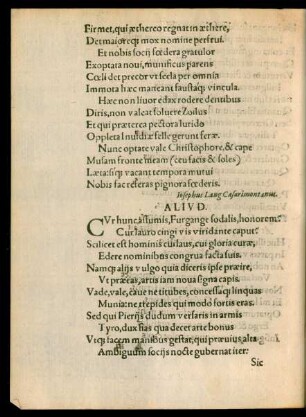 Firmet, qui æthereo regnat in æthere,
Det maiorcʠi mox nomine perfrui.
Et nobis socij fœdera gratulor
Exoptata noui, munificus parens
Cœli det precor vt secla per omnia
Immota hæc maneant faustaqȝ vincula.
Hæc non liuor edax rodere dentibus
Diris, non valeat soluere Zoilus
Et qui præterea pectora lurido
Oppleta Inuidiæ felle gerunt feræ.
Nunc optate vale Christophore, & cape
Musam fronte meam (ceu facis & soles)
Læta: sicqȝ vacant tempora mutui
Nobis fac referas pignora fœderis.
Iosephus Lang Cæsarimontanus.
ALIVD.
CVr hunc assumis, Furgange sodalis, honorem?
Cur lauro cingi vis viridante caput?
Scilicet est hominis cui laus, cui gloria curæ,
Edere nominibus congrua facta suis.
Namqȝ alijs vulgo quia diceris ipse præire,
Vt præeas, artis iam noua signa capis.
Vade, vale, caue ne titubes, concessaqȝ linquas
Munia: ne trepides qui modo fortis eras.
Sed qui Pierijs dudum versaris in armis
Tyro, dux fias qua decet arte bonus
Vtqȝ facem manibus gestat, qui præuius, alta
Ambiguum socijs nocte gubernat iter.
Sic